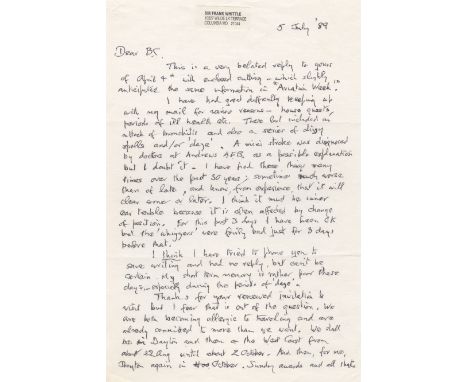 SIR FRANK WHITTLE
10327 WILDE LK TERRACE
COLUMBIA MD 21044
5 July '89
Dear B.J.
This is a very belated reply to yours
of April 4th with enclosed cutting – which slightly
anticipated the same information in "Aviation Week".
I have had great difficulty keeping up
with my mail for various reasons – house guests,
periods of ill health etc. These last included an
attack of bronchitis and also a series of dizzy
spells and/or 'daze'. A mini stroke was diagnosed
by doctors at Andrews AFB, as a possible explanation
but I doubt it. I have had these things many
times over the past 30 years; sometimes much worse
than of late, and know, from experience, that it will
clear sooner or later. I think it must be inner
ear trouble because it is often affected by change
of position. For the past 3 days I have been OK
but the were fairly bad just for 3 days
before that.
I think I have tried to phone you to
save writing and had no reply, but can't be
certain. My short term memory is rather poor these
days – especially during the periods of 'daze'.
Thanks for your renewed invitation to
visit but I fear that is out of the question. We
are both becoming allergic to traveling and are
already committed to more than we want. We shall
be in Dayton and then on the West Coast from
about 22 Aug until about 2 October. And then, for me,
Dayton again in October. Sundry awards and all that